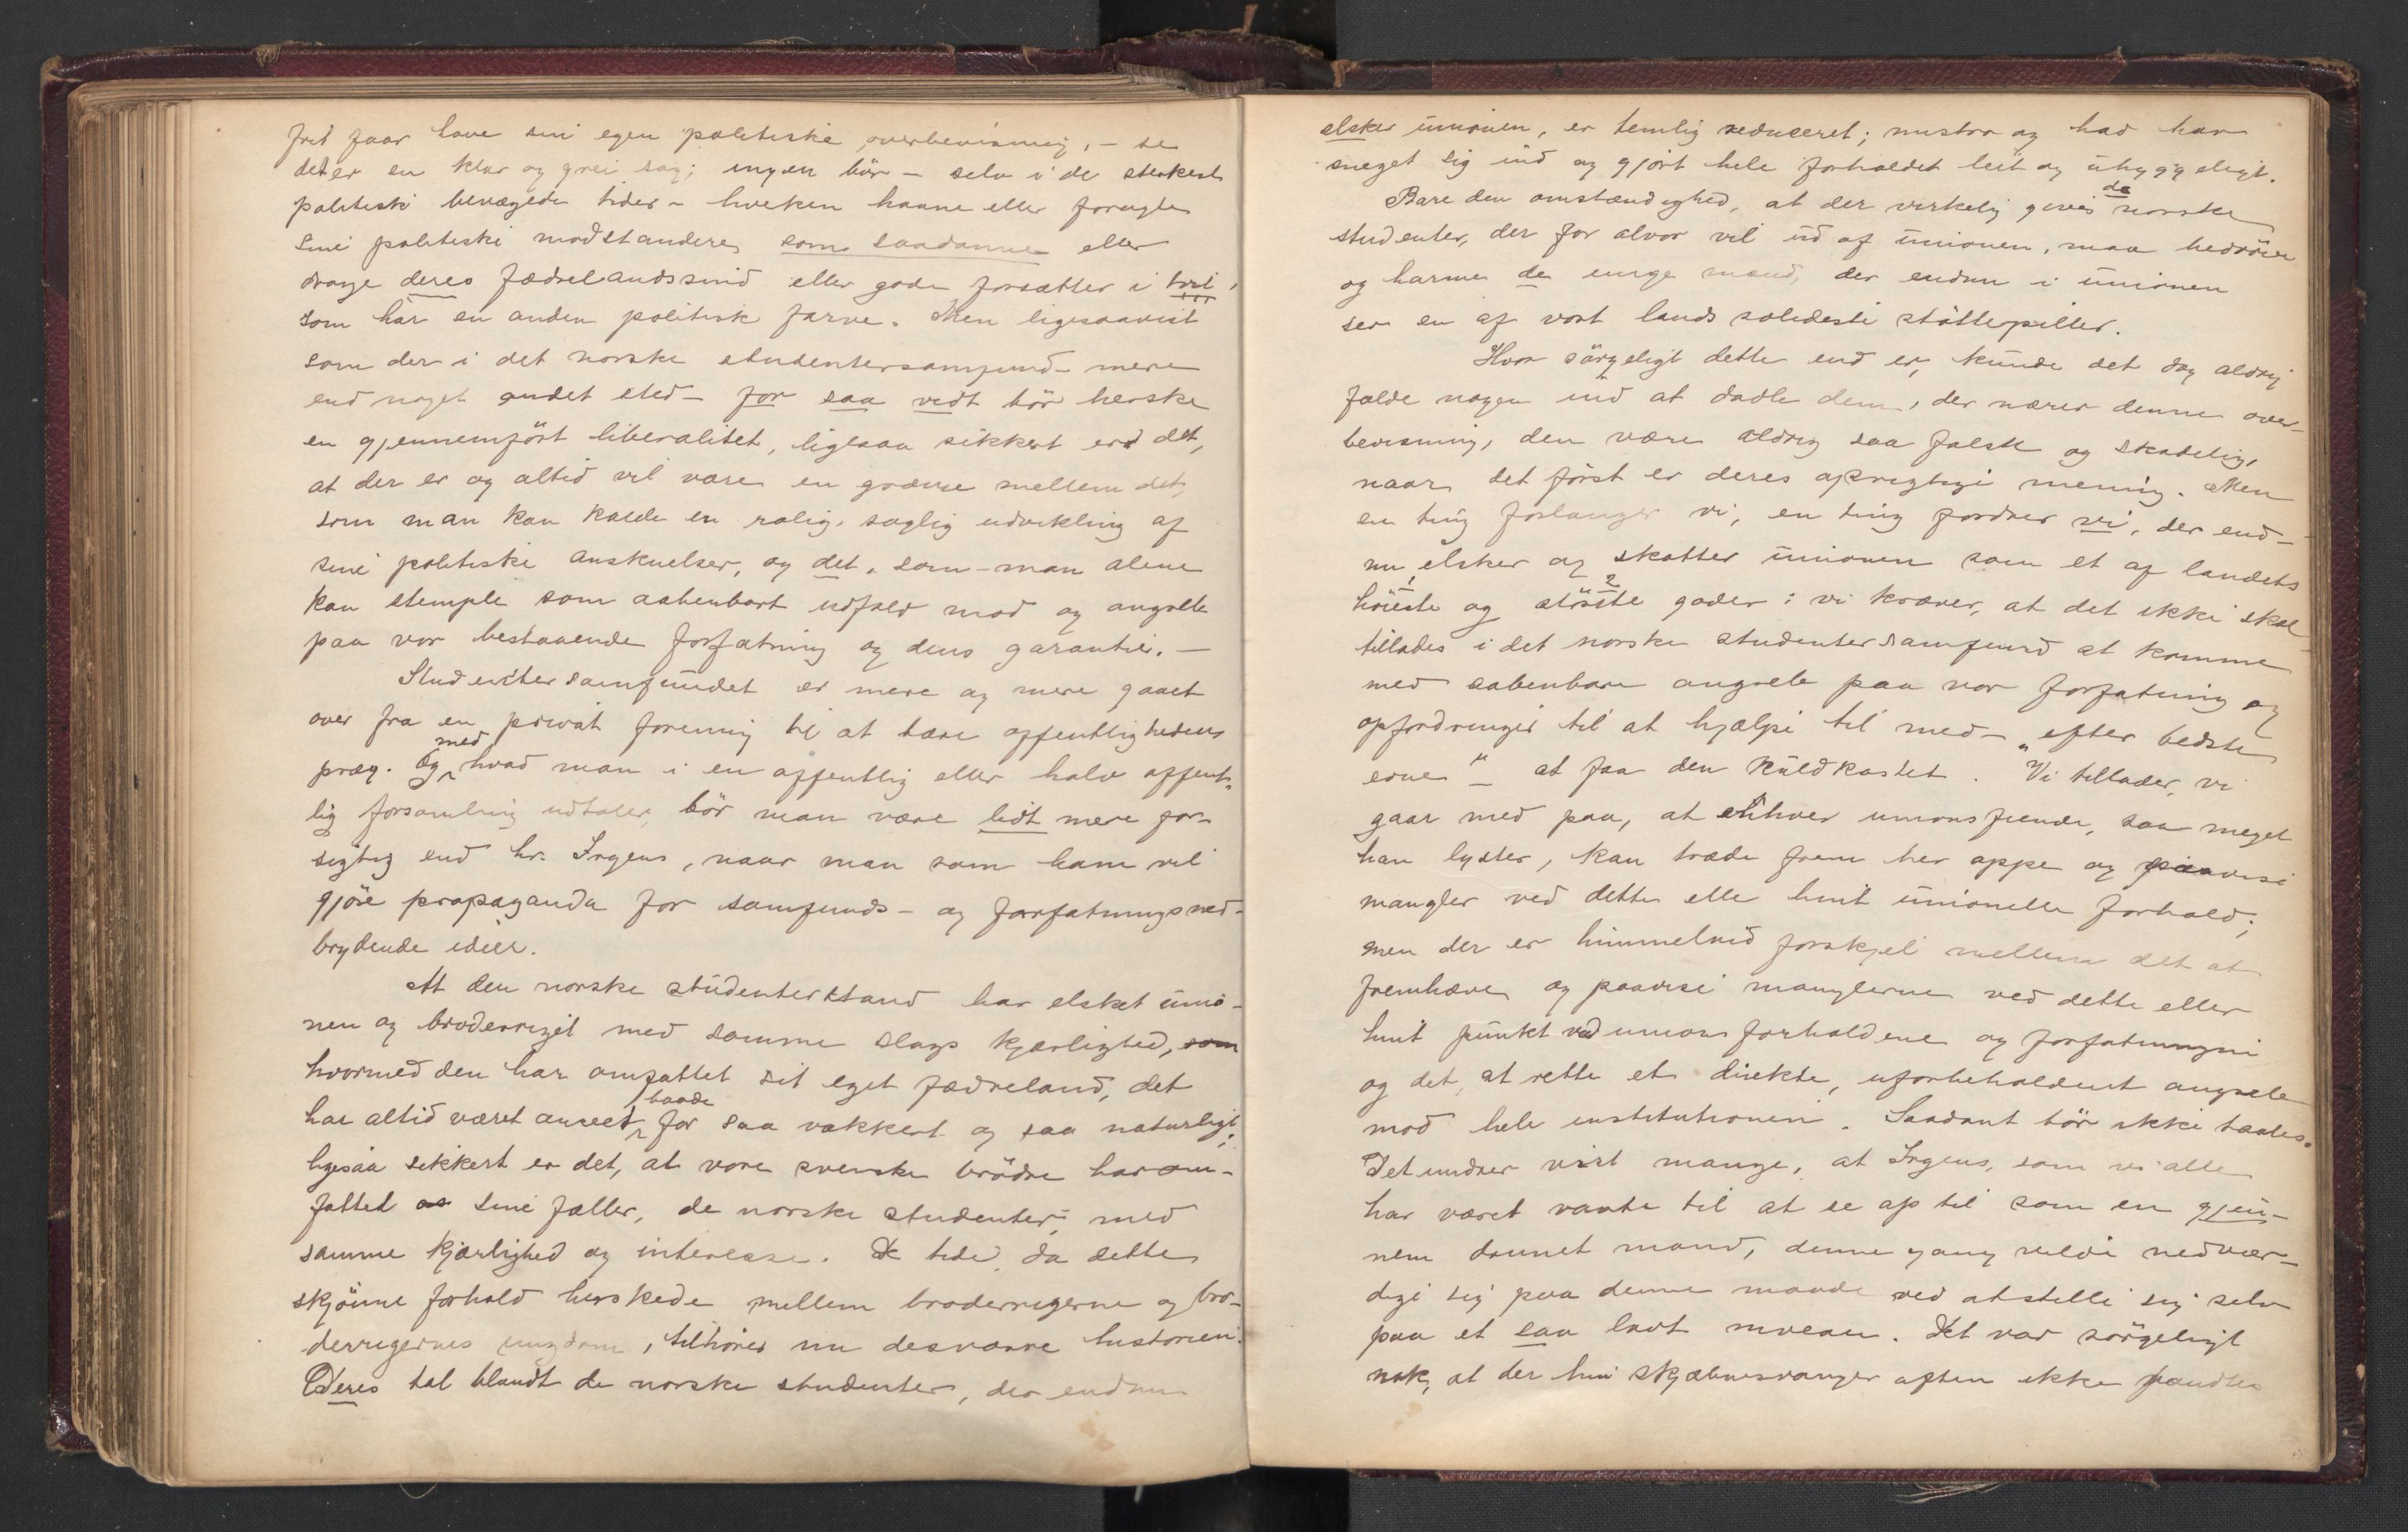 frit faar have sin egen politiske overbevisning, – se
det er en klar og grei sag; ingen bör – selv i de sterkest
politisk bevægede tider – hverken haane eller foragte
sine politiske modstandere som saadanne eller
drage deres fædrelandssind eller gode forsætter i tvil,
som har en anden politisk farve. Men ligesaavist
som der i det norske studentersamfund – mere
end noget andet sted – for saa vidt bör herske
en gjennemfört liberalitet, ligesaa sikkert er det,
at der er og altid vil være en grænse mellem det,
som man kan kalde en rolig, saglig udvikling af
sine politiske anskuelser, og det, som man alene
kan stemple som aabenbart udfald mod og angreb
paa vor bestaaende forfatning og dens garantie. –
Studentersamfundet er mere og mere gaaet
over fra en privat forening til at bære offentlighedens
præg. Og med hvad man i en offentlig eller halv offent-
lig forsamling udtaler, bör man være lidt mere for-
sigtig end hr. Irgens, naar man som ham vil
gjöre propaganda for samfunds- og forfatningsned-
brydende idéer.
At den norske studenterstand har elsket unio-
nen og broderriget med samme slags kjærlighed, som
hvormed den har omfattet sit eget fædreland, det
har altid været anseet baade for saa vakkert og saa naturligt;
ligesaa sikkert er det, at vore svenske brödre har om-
fattet sine fæller, de norske studenter, med
samme kjærlighed og interesse. De tider, da dette
skjönne forhold herskede mellem broderrigerne og bro-
derrigernes ungdom, tilhörer nu desværre historien.
Deres tal blandt de norske studenter, der endnu
elsker unionen, er temlig reduceret; mistro og had har
sneget sig ind og gjort hele forholdet leit og uhyggeligt.
Bare den omstændighed, at der virkelig gives de norske
studenter, der for alvor vil ud af unionen, maa bedröve
og harme de unge mænd, der endnu i unionen
ser en af vort lands solideste stöttepiller.
Hvor sörgeligt dette end er, kunde det dog aldrig
falde nogen ind at dadle dem, der nærer denne over-
bevisning, den være aldrig saa falsk og skadelig,
naar det först er deres oprigtige mening. Men
en ting forlanger vi, en ting fordrer vi, der end-
nu elsker og skatter unionen som et af landets
höieste og störste 2 goder: vi kræver, at det ikke skal
tillades i det norske studentersamfund at komme
med aabenbare angreb paa vor forfatning og
opfordringer til at hjælpe til med – „efter bedste
evne“ – at faa den kuldkastet. Vi tillader, vi
gaar med paa, at enhver unionsfiende, saa meget
han lyster, kan træde frem her oppe og paavise
mangler ved dette eller hint unionelle forhold;
men der er himmelvid forskjel mellem det at
fremhæve og paavise manglerne ved dette eller
hint punkt ved unionsforholdene og forfatningen
og det, at rette et direkte, uforbeholdent angreb
mod hele institutionen. Saadant bör ikke taales.
Det undrer vist mange, at Irgens, som vi alle
har været vante til at se op til som en gjen-
nem dannet mand, denne gang vilde nedvær-
dige sig paa denne maade ved at stille sig selv
paa et saa lavt niveau. Det var sörgeligt
nok, at der hin skjæbnesvangre aften ikke fandtes